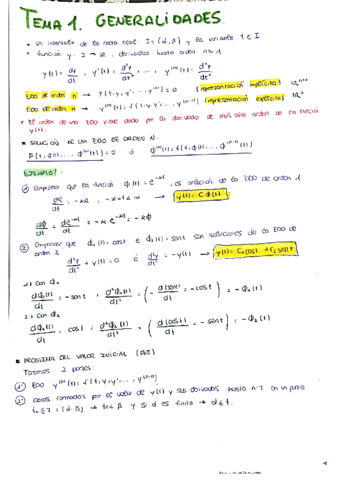 TEMA 1. GENERALIDADES.
• Un intervalo de la recta real I=(α,β) y la variable t ∈ I
• función y: I → ℝ, derivadas hasta orden n≥1
y(t) = dy/dt, y'(t) = d²y/dt, ..., y⁽ⁿ⁾(t) = dⁿy/dtⁿ
EDO de orden n → F(t,y,y',...y⁽ⁿ⁾)=0 (representación implícita)
EDO de orden n → y⁽ⁿ⁾(t) = f(t,y,y',...y⁽ⁿ⁻¹⁾) (representación explícita)
* El orden de una EDO viene dado por la derivada de más alto orden de la función
y(t).
■ SOLUCIÓN DE UNA EDO DE ORDEN N.
F(t,ϕ(t),... ϕ⁽ⁿ⁾(t))=0 ó ϕ⁽ⁿ⁾(t) = f(t,ϕ(t),... ϕ⁽ⁿ⁻¹⁾(t))
EJEMPLO:
① Comprobar que la función ϕ(t) = e⁻ᵅᵗ, es solución de la EDO de orden 1
→ y(t) = Cϕ(t)
② Comprobar que ϕ₁(t) = cost e ϕ₂(t) = sent son soluciones de la EDO de
orden 2. d²y/dt² + y(t) = 0 ó d²y/dt² = -y(t) → y(t) = C₁cost + C₂sent
2.1 Con ϕ₁
dϕ₁(t)/dt = -sent ; d²ϕ₁(t)/dt² = (- d(sent)/dt = -cost) = -ϕ₁(t)
2.2 Con ϕ₂
dϕ₂(t)/dt = cost ; d²ϕ₂(t)/dt² = (d(cost)/dt = -sent) = -ϕ₂(t)
■ PROBLEMA DEL VALOR INICIAL
Tenemos 2 partes:
1º EDO y⁽ⁿ⁾(t) = f(t,y,y',... y⁽ⁿ⁻¹⁾)
2º Datos formados por el valor de y(t) y sus derivadas hasta n-1 en un punto
t₀ ∈ I = (α,β)
1